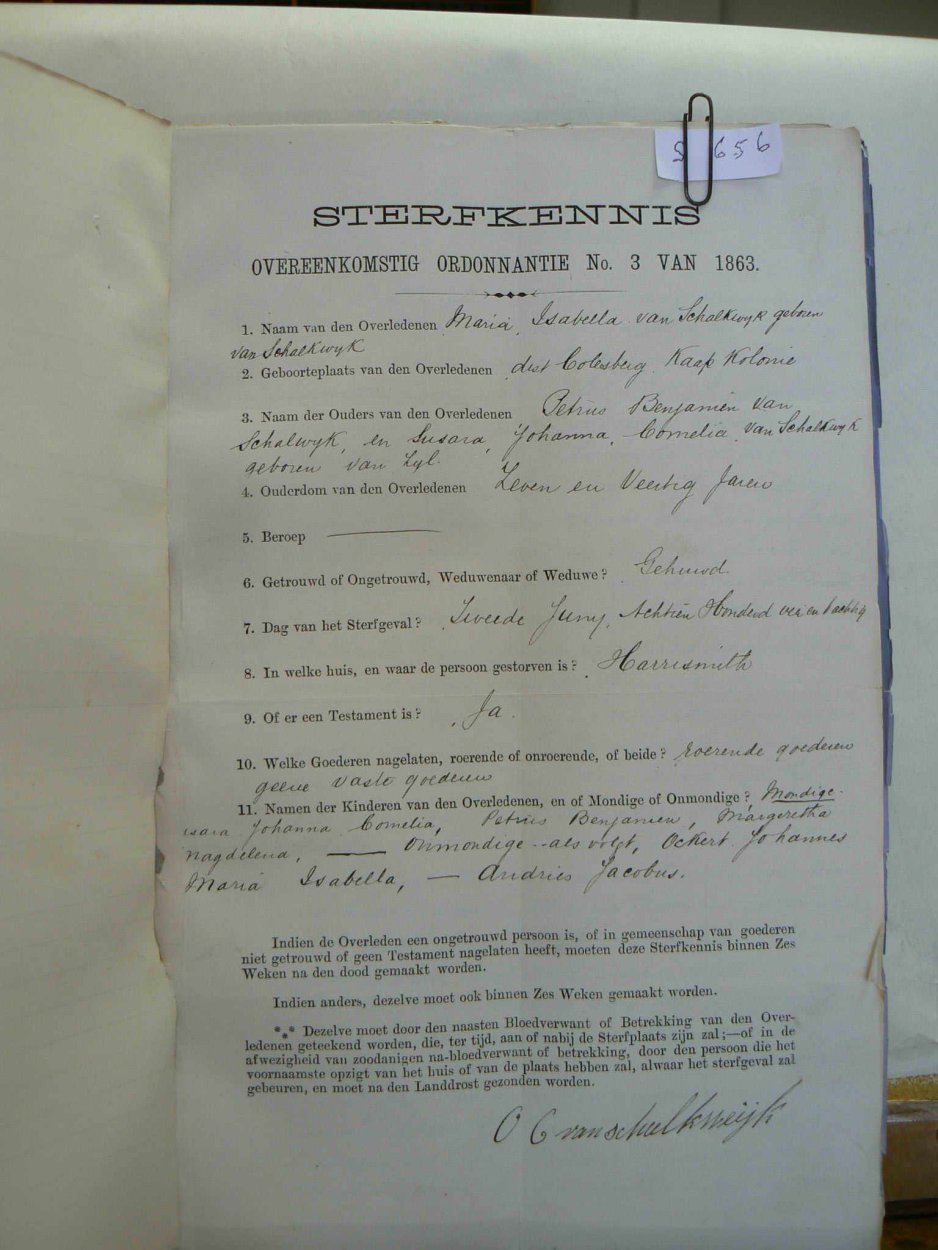 S 656
STERFKENNIS
OVEREENKOMSTIG ORDONNANTIE No. 3 VAN 1863.
1. Naam van den Overledenen Maria Isabella van Schalkwyk geboren
van Schalkwyk
2. Geboorteplaats van den Overledenen dist Colesberg Kaap Kolonie
3. Naam der Ouders van den Overledenen Petrus Benjamien van
Schalwyk, en Susara, Johanna, Cornelia van Schalkwyk
geboren van Zyl.
4. Ouderdom van den Overledenen Zeven en Veertig Jaren
5. Beroep
6. Getrouwd of Ongetrouwd, Weduwenaar of Weduwe? Gehuwd.
7. Dag van het Sterfgeval? Tweede Juny, Achtien Honderd vier en tachtig
8. In welke huis, en waar de persoon gestorven is? Harrismith
9. Of er een Testament is? Ja.
10. Welke Goederen nagelaten, roerende of onroerende, of beide? roerende goederen
geene vaste goederen
11. Namen der Kinderen van den Overledenen, en of Mondige of Onmondige? Mondige.
usara Johanna Cornelia, Petrus Benjamien, Margeretha
Magdelena, — Onmondige -- als volgt, Ockert Johannes
Maria Isabella, — Andries Jacobus.
Indien de Overleden een ongetrouwd persoon is, of in gemeenschap van goederen
niet getrouwd of geen Testament nagelaten heeft, moeten deze Sterfkennis binnen Zes
Weken na den dood gemaakt worden.
Indien anders, dezelve moet ook binnen Zes Weken gemaakt worden.
*⁎* Dezelve moet door den naasten Bloedverwant of Betrekking van den Over-
ledenen geteekend worden, die, ter tijd, aan of nabij de Sterfplaats zijn zal;—of in de
afwezigheid van zoodanigen na-bloedverwant of betrekking, door den persoon die het
voornaamste opzigt van het huis of van de plaats hebben zal, alwaar het sterfgeval zal
gebeuren, en moet na den Landdrost gezonden worden.
O C van schalkweijk